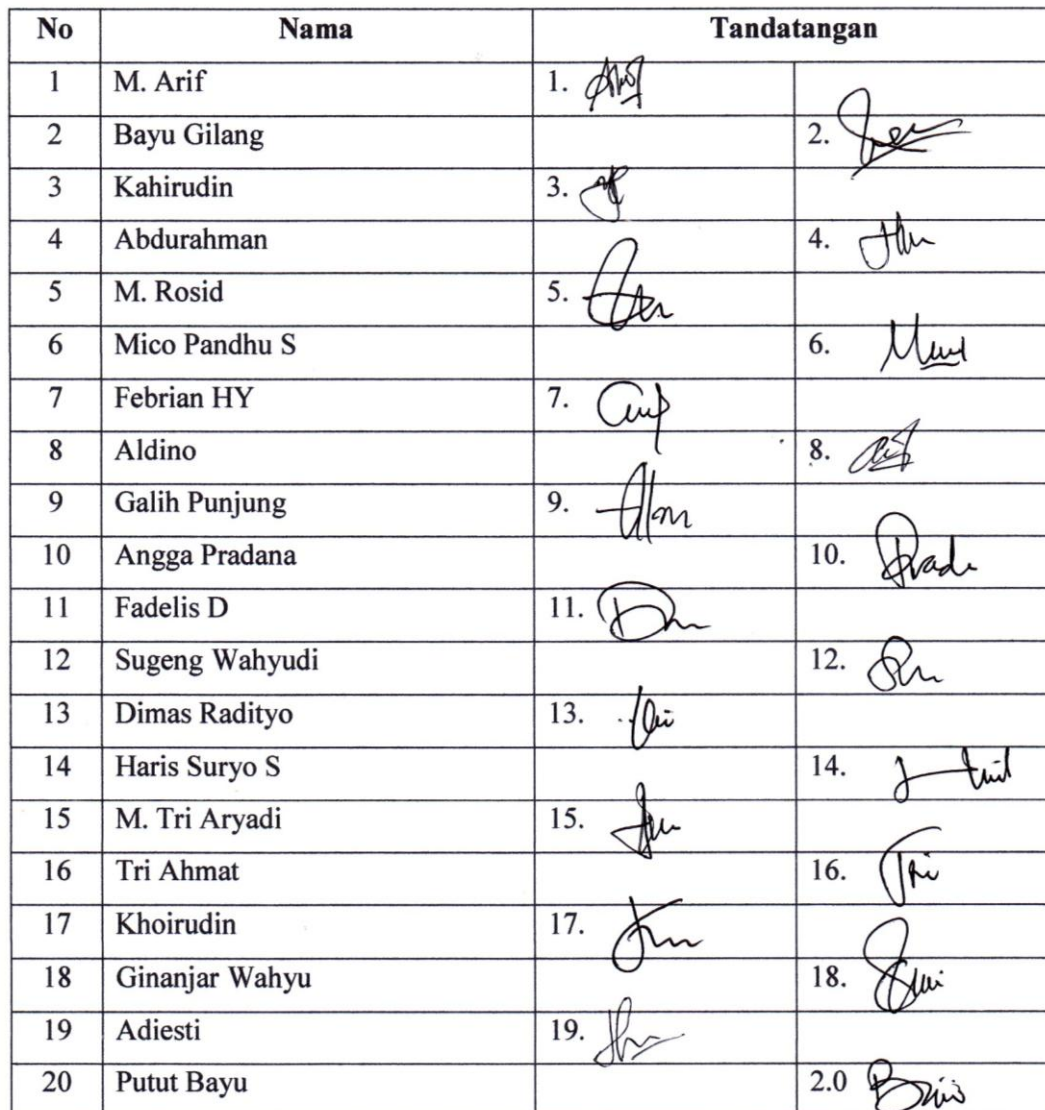 No Nama Tandatangan
1 M. Arif 1.
2 Bayu Gilang 2.
3 Kahirudin 3.
4 Abdurahman 4.
5 M. Rosid 5.
6 Mico Pandhu S 6.
7 Febrian HY 7.
8 Aldino 8.
9 Galih Punjung 9.
10 Angga Pradana 10.
11 Fadelis D 11.
12 Sugeng Wahyudi 12.
13 Dimas Radityo 13.
14 Haris Suryo S 14.
15 M. Tri Aryadi 15.
16 Tri Ahmat 16. Tri
17 Khoirudin 17.
18 Ginanjar Wahyu 18.
19 Adiesti 19.
20 Putut Bayu 2.0